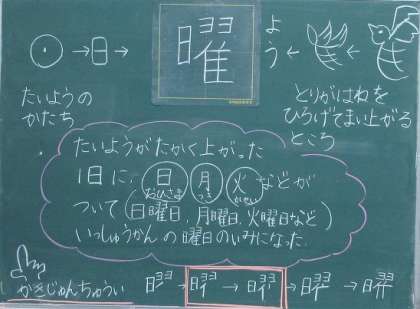 曜
よう
→日→
たいようの
かたち
とりがはねを
ひろげてまい上がる
ところ
たいようがたかく上がった
1日に、日 月 火 などが
おひさま つき かせい
ついて(日曜日、月曜日、火曜日など)
いっしゅうかんの曜日のいみになった。
かきじゅんちゅうい
→ → → 曜